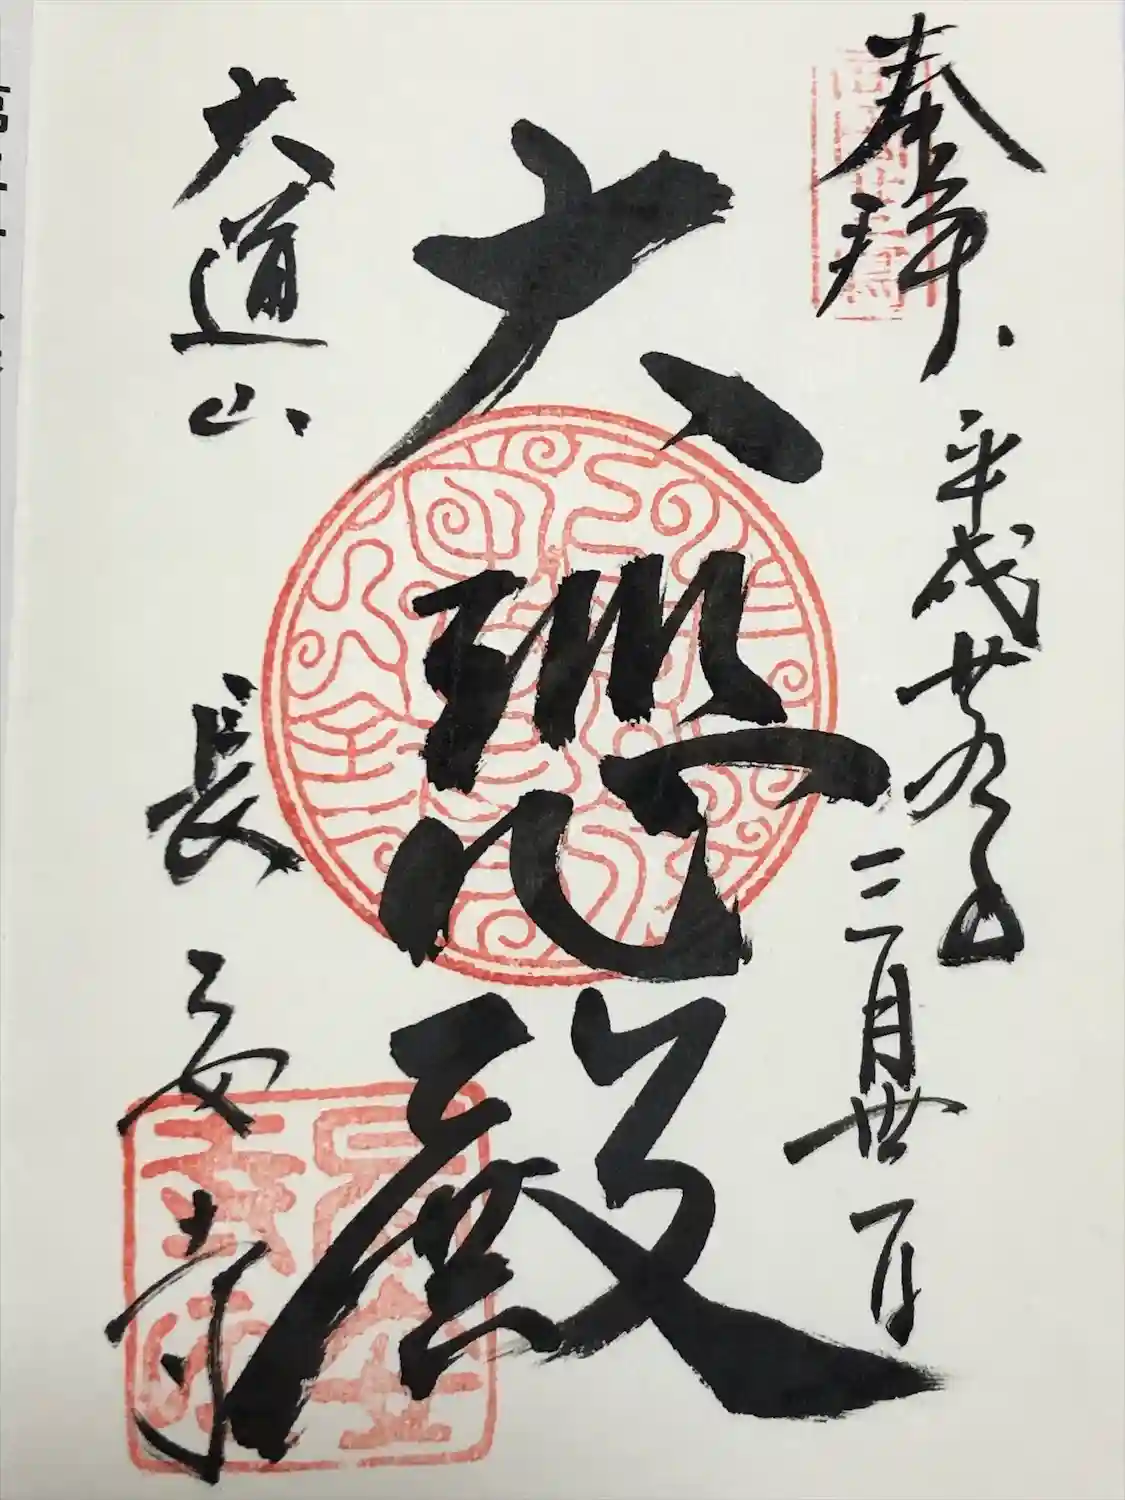 奉拝
平成廿九年
三月廿一日
大悲殿
大道山
長安寺